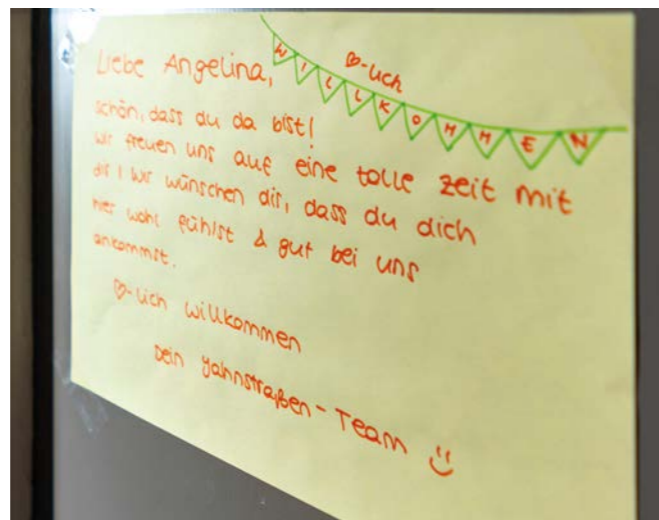 Liebe Angelina,
♡-lich
WILLKOMMEN
schön, dass du da bist!
Wir freuen uns auf eine tolle Zeit mit
dir! Wir wünschen dir, dass du dich
hier wohl fühlst & gut bei uns
ankommst.
♡-lich willkommen
Dein Jahnstraßen-Team ü